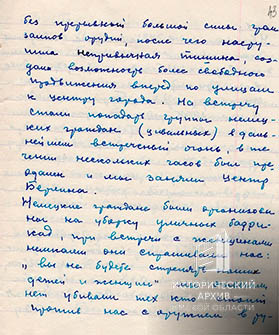 без прерывной большой силы грам
залпов орудий, после чего насту-
пила непривычная тишина, соз-
дало возможность более свободного
продвижения вперед по улицам
к центру города. На встречу
стали попадать группы немец-
ких граждан (цивильных) в даль-
нейшем встреченый огонь, в те-
чении нескольких часов был пре
одален и мы заняли центр
Берлина.
Немецкие граждане были организова-
ны на уборку уличных барри-
кад, при встречи с
они спрашивали нас:
„вы не будете стрелять наших
детей и женщин"
нет убивали тех кто
против нас с оружием в ру-
ИСТОРИЧЕСКИЙ
АРХИВ